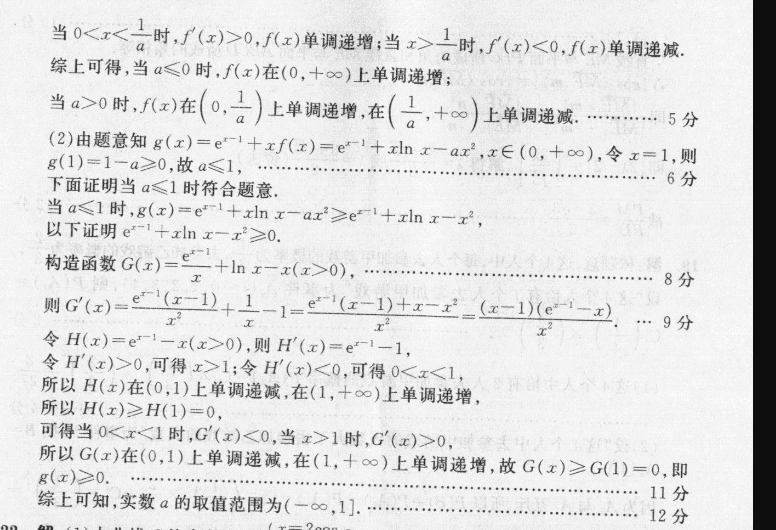 当 0<x<1/a 时,f′(x)>0,f(x)单调递增;当 x>1/a 时,f′(x)<0,f(x)单调递减.
综上可得,当 a≤0 时,f(x)在(0,+∞)上单调递增;
当 a>0 时,f(x)在(0,1/a)上单调递增,在(1/a,+∞)上单调递减. ………… 5 分
(2)由题意知 g(x)=e^{x-1}+xf(x)=e^{x-1}+xln x-ax²,x∈(0,+∞),令 x=1,则
g(1)=1-a≥0,故 a≤1, ………… 6 分
下面证明当 a≤1 时符合题意.
当 a≤1 时,g(x)=e^{x-1}+xln x-ax²≥e^{x-1}+xln x-x²,
以下证明 e^{x-1}+xln x-x²≥0.
构造函数 G(x)=e^{x-1}/x+ln x-x(x>0), ………… 8 分
则 G′(x)=e^{x-1}(x-1)/x²+1/x-1=(e^{x-1}(x-1)+x-x²)/x²=(x-1)(e^{x-1}-x)/x². … 9 分
令 H(x)=e^{x-1}-x(x>0),则 H′(x)=e^{x-1}-1,
令 H′(x)>0,可得 x>1;令 H′(x)<0,可得 0<x<1,
所以 H(x)在(0,1)上单调递减,在(1,+∞)上单调递增,
所以 H(x)≥H(1)=0,
可得当 0<x<1 时,G′(x)<0,当 x>1 时,G′(x)>0,
所以 G(x)在(0,1)上单调递减,在(1,+∞)上单调递增,故 G(x)≥G(1)=0,即
g(x)≥0. ………… 11 分
综上可知,实数 a 的取值范围为(-∞,1]. ………… 12 分